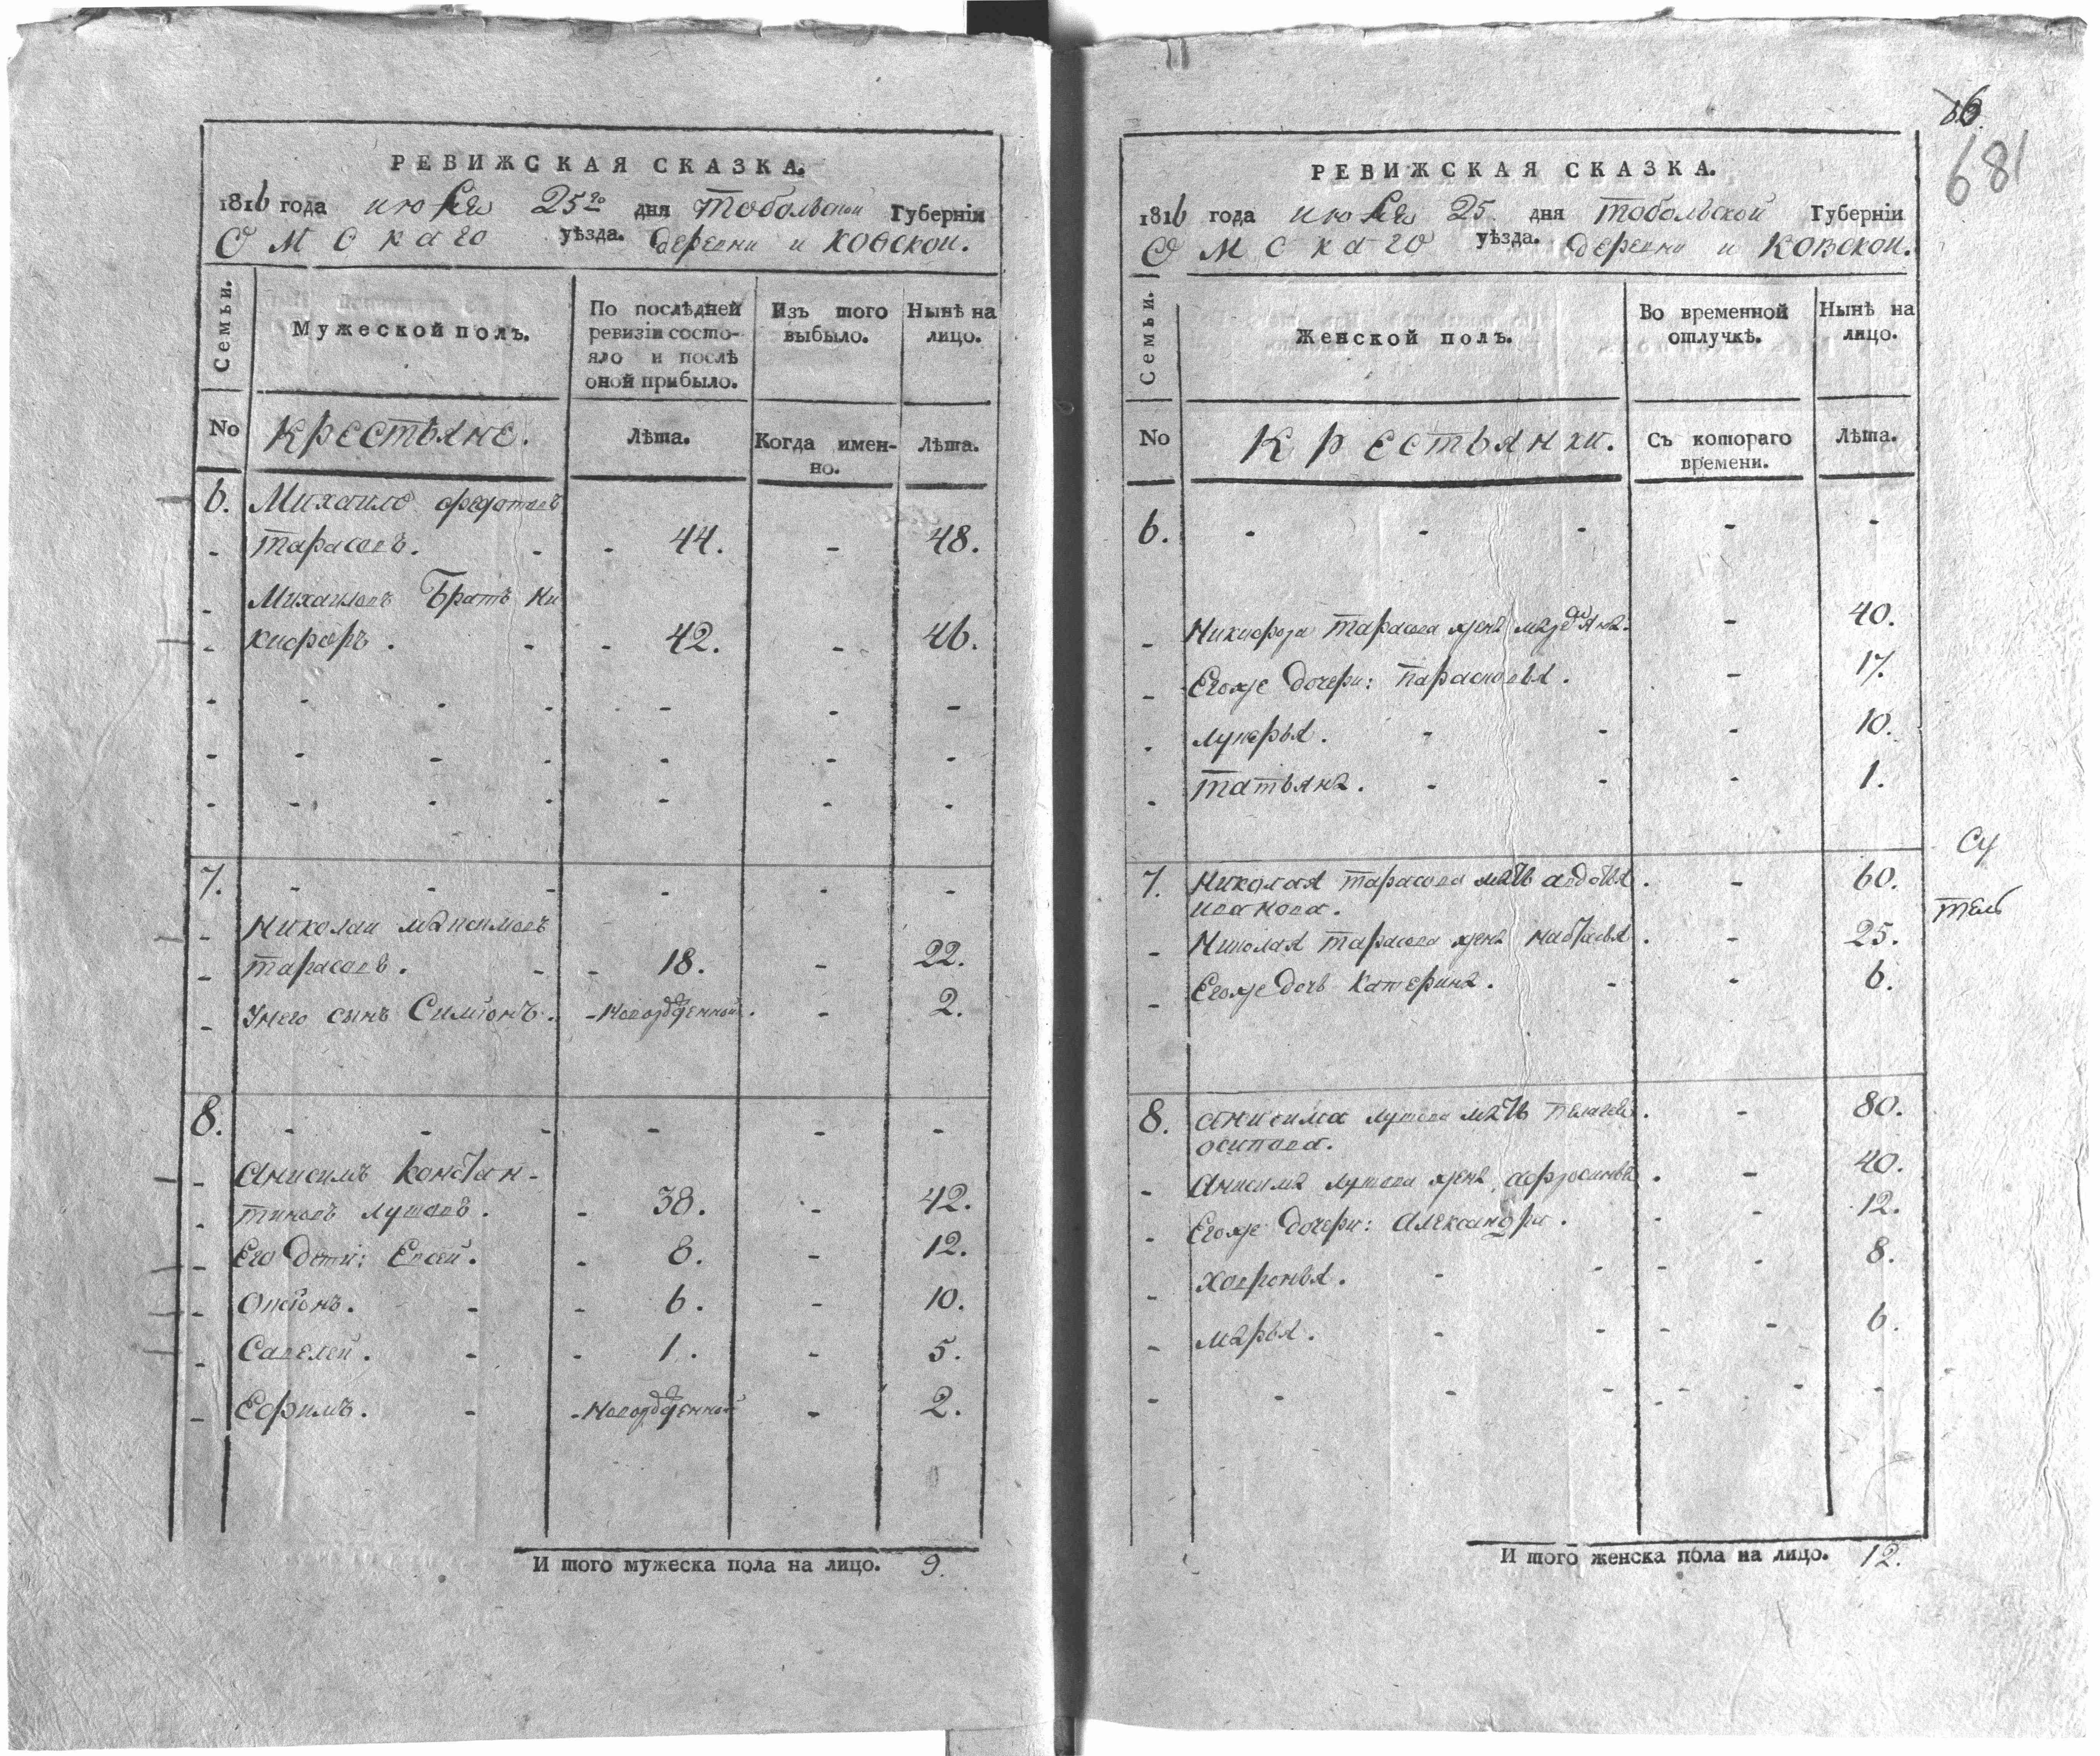 РЕВИЖСКАЯ СКАЗКА.
1816 года июля 25го дня Тобольской Губерніи
Омскаго уѣзда. деревни Иковской.
Семьи.
Мужеской полъ.
По послѣдней ревизіи состояло и послѣ оной прибыло.
Изъ того выбыло.
Нынѣ на лицо.
No
Крестьяне.
Лѣта.
Когда именно.
Лѣта.
6. Михайло Федотовъ
- Тарасовъ. - - 44. - 48.
- Михайловъ Братъ Ни
- кифоръ. - - 42. - 46.
7. - - - - - -
- Николай Максимовъ
- Тарасовъ. - - 18. - 22.
- У него сынъ Симіонъ. - Новорожденной. - 2.
8. - - - - - -
- Анисимъ Констан-
- тиновъ Лутовъ. - 38. - 42.
- Его дети: Евсей. - 8. - 12.
- - - 6. - 10.
- Савелей. - - 1. - 5.
- Ефимъ. - - Новорожденной - 2.
И того мужеска пола на лицо. 9.
86.
681
РЕВИЖСКАЯ СКАЗКА.
1816 года июля 25 дня Тобольской Губерніи
Омскаго уѣзда. деревни Иковской.
Семьи.
Женской полъ.
Во временной отлучкѣ.
Нынѣ на лицо.
No
Крестьянки.
Съ котораго времени.
Лѣта.
6. - - - - -
- Никифора Тарасова жена - 40.
- Егоже дочери: Парасковья. - 17.
- Лукерья. - - - 10.
- Татьяна. - - - 1.
7. Николая Тарасова мать Авдотья - 60.
Иванова.
- Николая Тарасова жена Настасья. - 25.
- Егоже дочь Катерина. - - 6.
8. Анисима Лутова мать Пелагея. - 80.
Осипова.
- Анисима Лутова жена Афросинья. - 40.
- Егоже дочери: Александра. - - 12.
- Хавронья. - - - - 8.
- Марья. - - - - 6.
И того женска пола на лицо. 12.
Су
тель